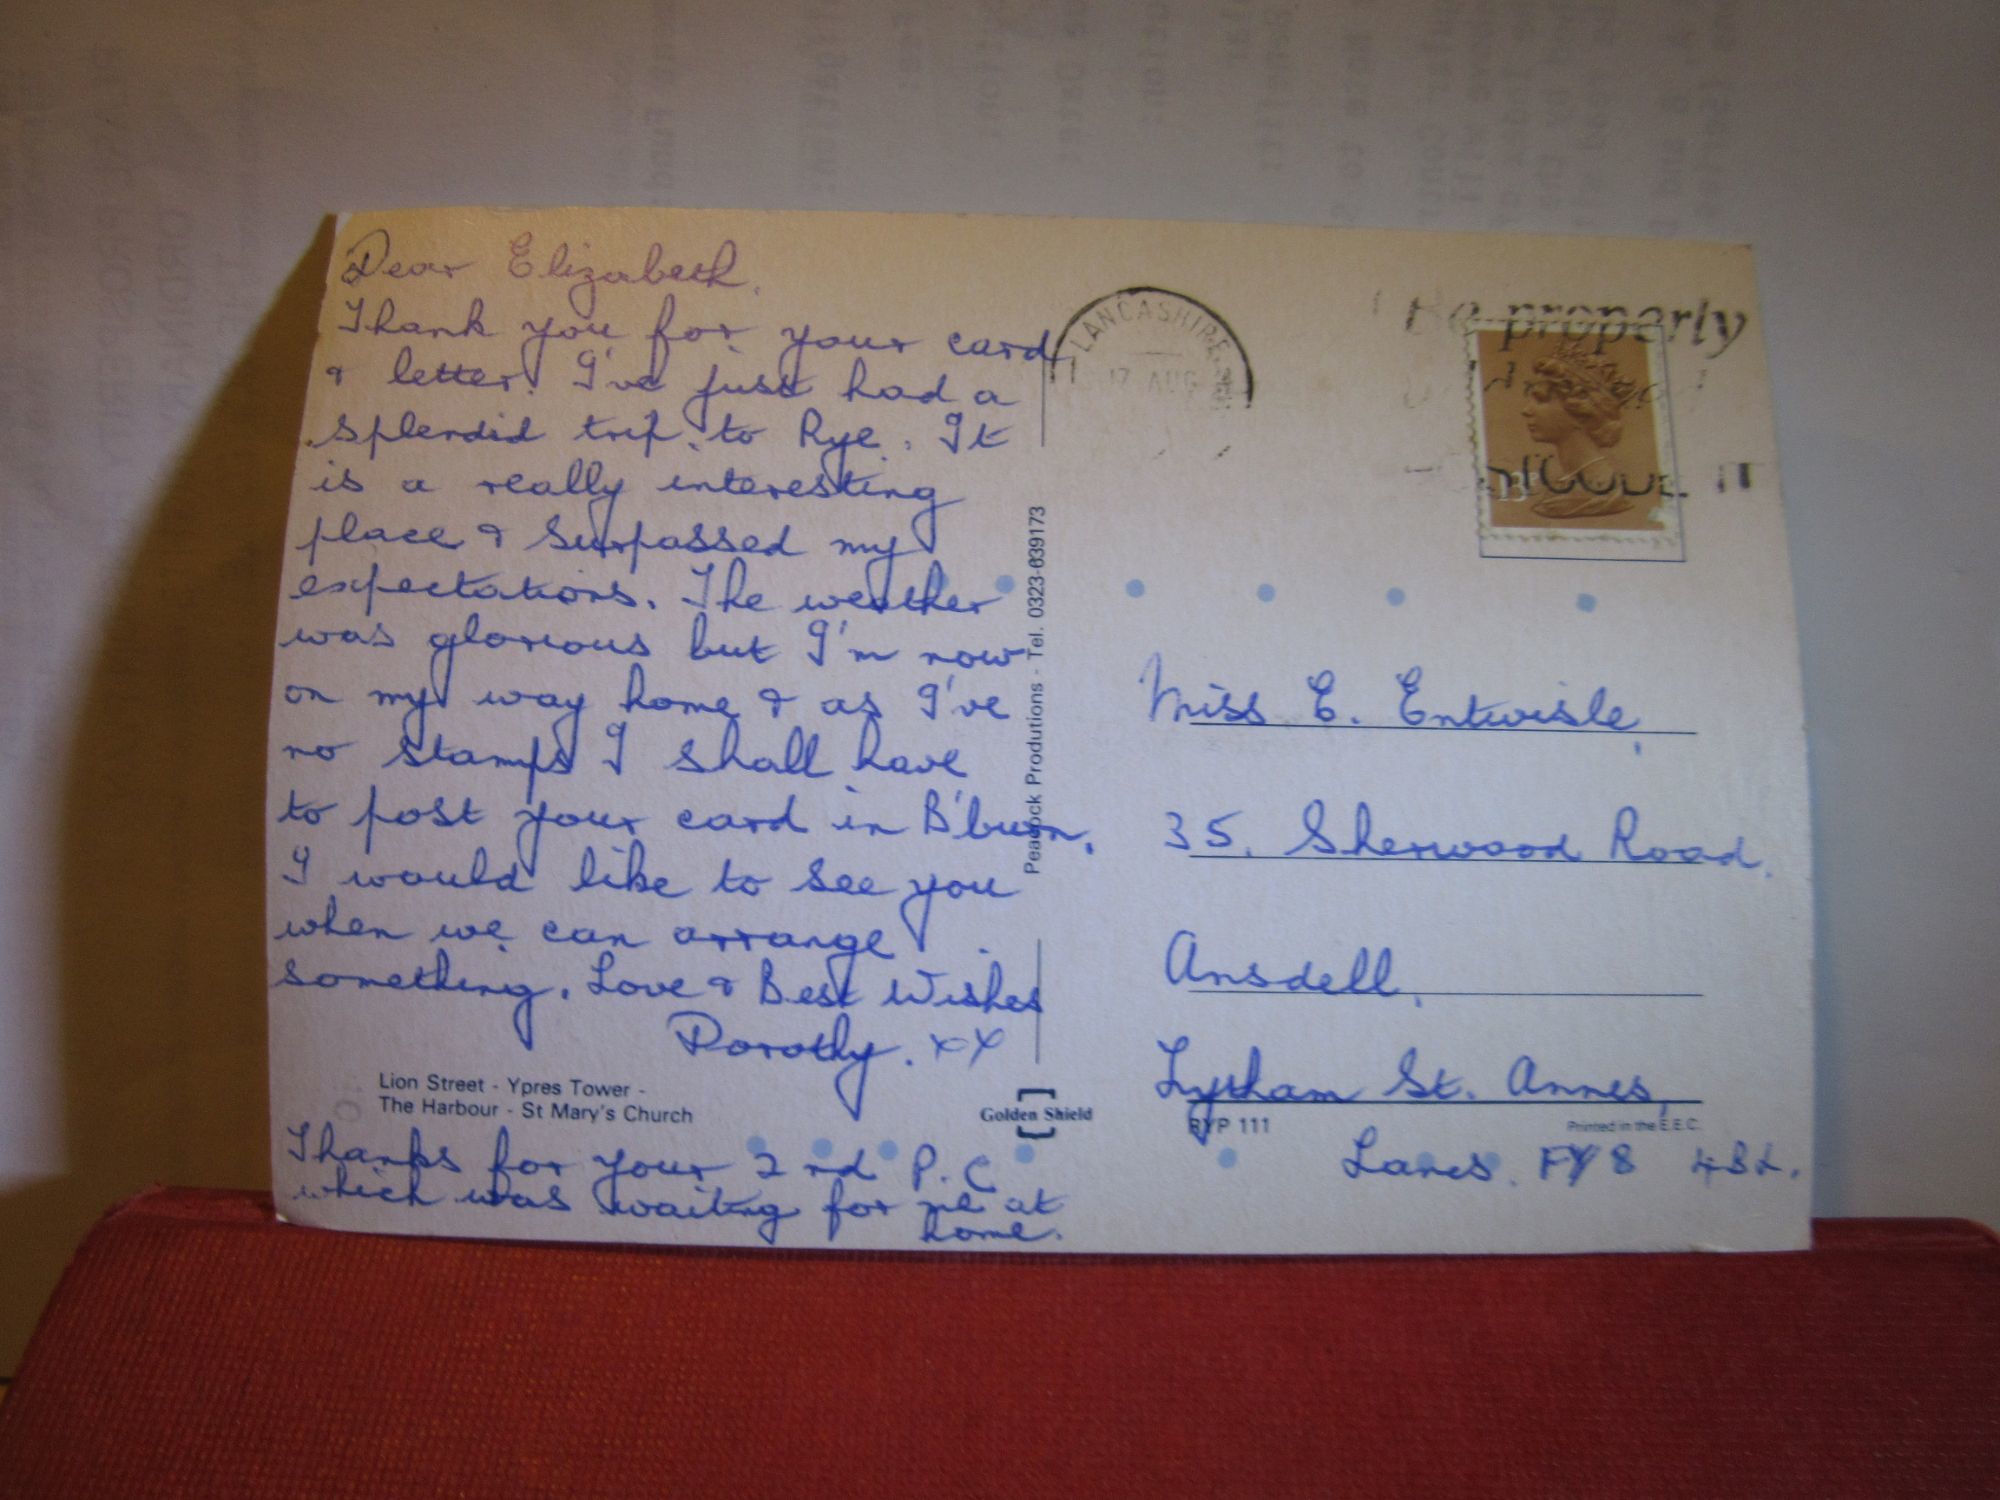 Dear Elizabeth,
Thank you for your card
& letter. I've just had a
splendid trip to Rye. It
is a really interesting
place & surpassed my
expectations. The weather
was glorious but I'm now
on my way home & as I've
no stamps I shall have
to post your card in B'burn.
I would like to see you
when we can arrange
something. Love & Best Wishes
Dorothy. xx
Lion Street - Ypres Tower -
The Harbour - St Mary's Church
Thanks for your 2 rd P.C
which was waiting for me at
home.
Peacock Produtions - Tel. 0323-639173
Golden Shield
LANCASHIRE
17 AUG
Be properly
13P
Miss E. Entwisle,
35. Sherwood Road.
Ansdell,
Lytham St. Annes,
RYP 111
Printed in the E.E.C.
Lancs. FY8